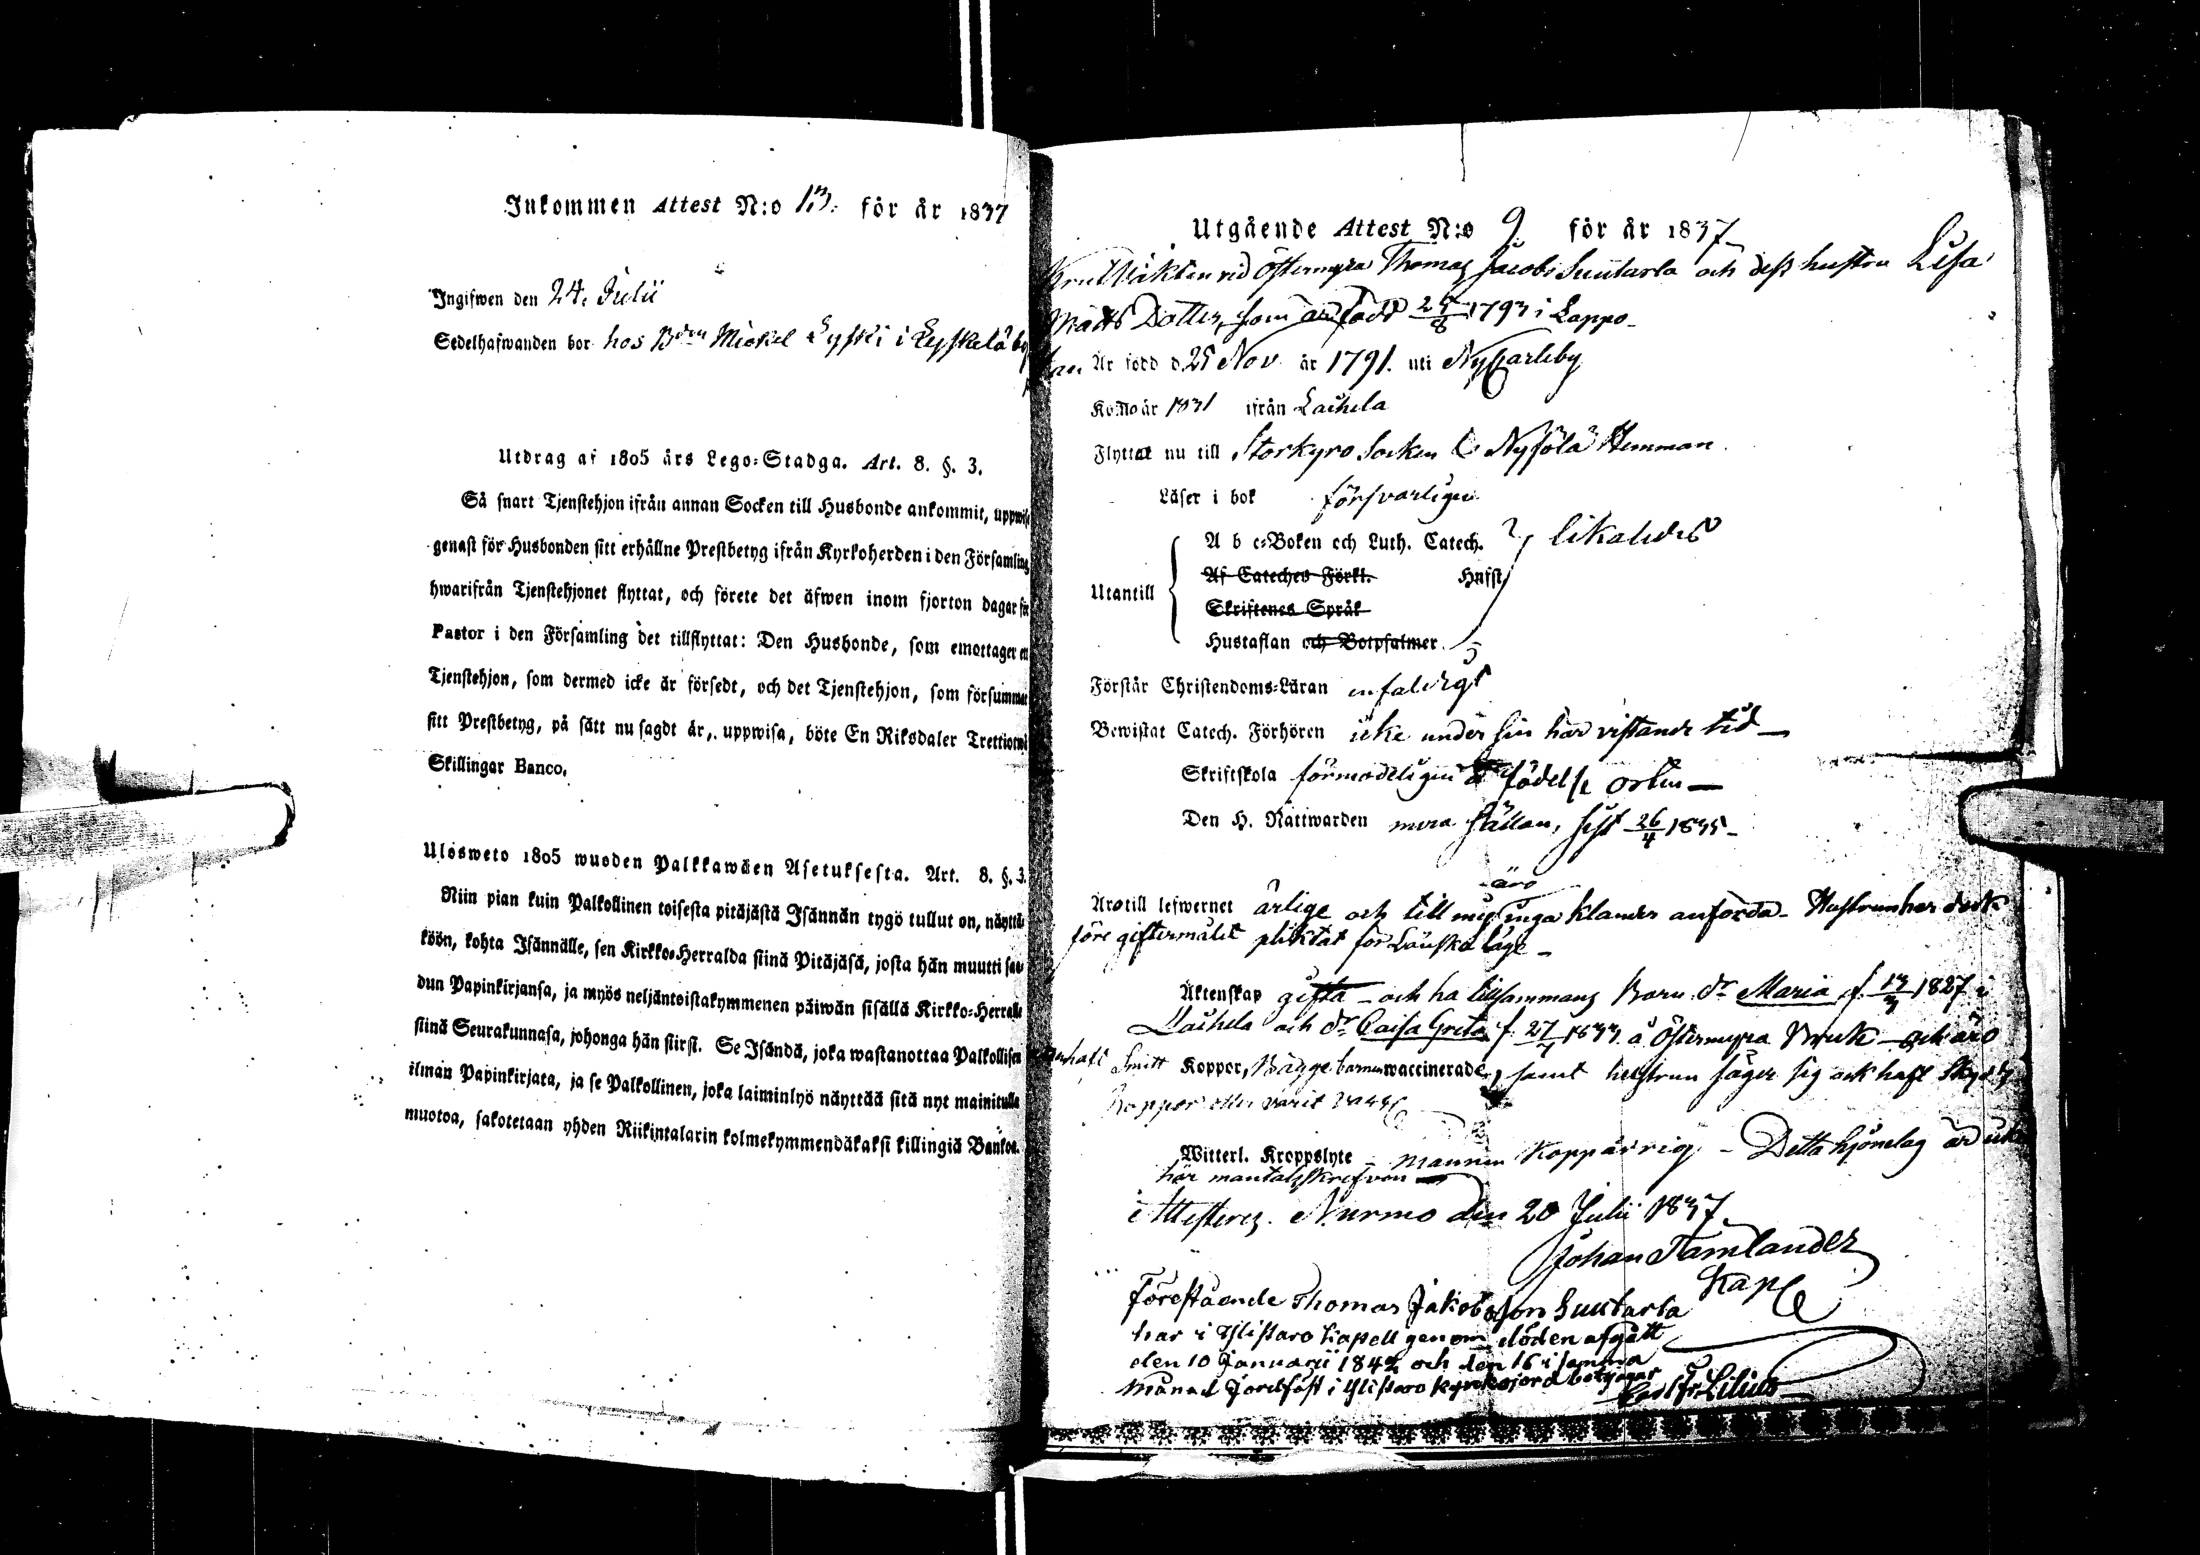 Inkommen Attest N:o 13. för år 1837
Ingifwen den 24. Julii
Sedelhafwanden bor hos Mickel Lyski i Lyskelä by
Utdrag af 1805 års Lego-Stadga. Art. 8. §. 3.
Så snart Tjenstehjon ifrån annan Socken till Husbonde ankommit, uppwise
genast för Husbonden sitt erhållne Prestbetyg ifrån Kyrkoherden i den Församling
hwarifrån Tjenstehjonet flyttat, och förete det äfwen inom fjorton dagar för
Pastor i den Församling det tillflyttat: Den Husbonde, som emottager ett
Tjenstehjon, som dermed icke är försedt, och det Tjenstehjon, som försummar
sitt Prestbetyg, på sätt nu sagdt är, uppwisa, böte En Riksdaler Trettiotwå
Skillingar Banco.
Ulosweto 1805 wuoden Palkkawäen Asetuksesta. Art. 8. §. 3.
Niin pian kuin Palkollinen toisesta pitäjästä Isännän tygö tullut on, näyttä-
köön, kohta Isännälle, sen Kirkko-Herralda siinä Pitäjäsä, josta hän muutti saa-
dun Papinkirjansa, ja myös neljäntoistakymmenen päiwän sisällä Kirkko-Herralle
siinä Seurakunnasa, johonga hän siirsi. Se Isändä, joka wastanottaa Palkollisen
ilman Papinkirjata, ja se Palkollinen, joka laiminlyö näyttää sitä nyt mainitulla
muotoa, sakotetaan yhden Riikintalarin kolmekymmendäkaksi killingiä Bankoa.
Utgående Attest N:o 9. för år 1837
vid Östermyra Thomas Jacobs Luutarla och dess hustru Lisa
Matts Dotter, som är född 24/8 1793 i Lappo
Är född d. 25 Nov. år 1791. uti NyCarleby
Kom år 1831 ifrån Laihela
Flyttat nu till Storkyro Socken & Nyfölä Hemman
Läser i bok försvarligen
A b c-Boken och Luth. Catech. likaledes
Af Cateches Förkl. Hufst.
Utantill
Skriftenes Språk
Hustaflan och Botpsalmer
Förstår Christendoms-Läran enfaldigt
Bewistat Catech. Förhören icke under sin här vistande tid
Skriftskola förmodeligen å födelse orten
Den H. Nattwarden mera sällan, sist 26/4 1835
äro
Äro till lefwernet ärlige och till mig inga klander anförda. Hustrun har dock
före giftermålet pliktat för Lönskaläge
Äktenskap gifta och ha tillsammans Barn dr Maria f. 13/3 1827 i
Laihela och dr Caisa Greta f. 27/4 1833 å Östermyra Bruk och äro
Smitt Koppor, Bägge barnen waccinerade, samt hustrun säger sig ock haft Skydds
Koppor eller varit vacc
Witterl. Kroppslyte mannen Koppärrig Detta hjonelag är icke
här mantalsskrefven
Attesteres. Nurmo den 20 Julii 1837
Johan Tamlander
Kapl
Förestående Thomas Jakobsson Luutarla
har i Ylistaro Kapell genom döden afgått
den 10 Januarii 1842 och den 16 i samma
Månad Jordfäst i Ylistaro Kyrkojord betygar
Lilius